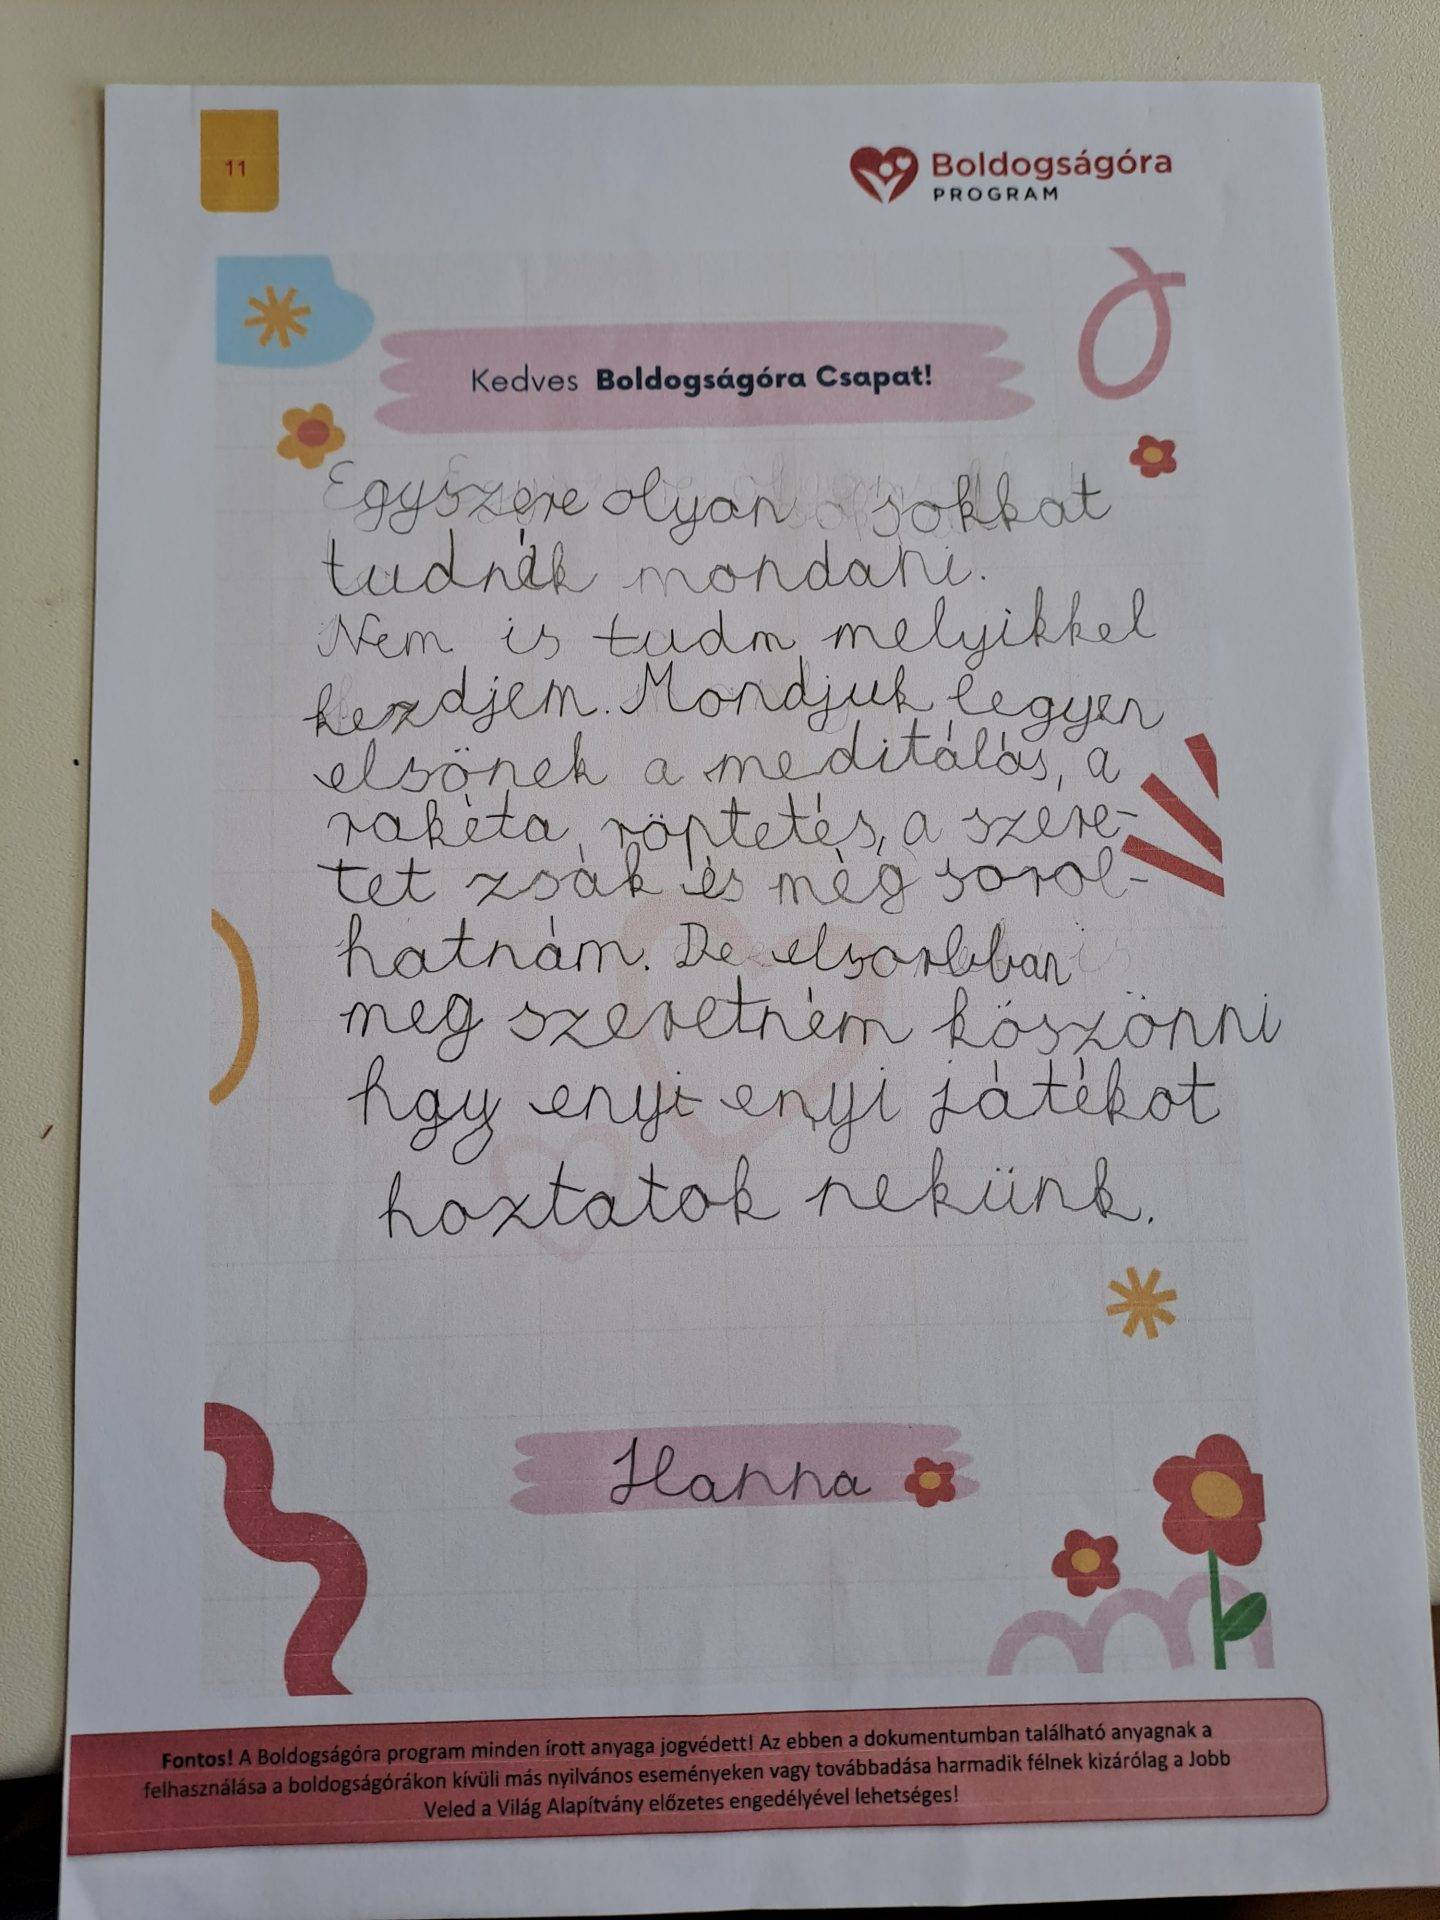 11
Boldogságóra
PROGRAM
Kedves Boldogságóra Csapat!
Egyszere olyan sokkat
tudnék mondani.
Nem is tudm melyikkel
kezdjem. Mondjuk legyen
elsönek a meditálás, a
rakéta röptetés, a szere-
tet zsák és még sorol-
hatnám. De elsorbban
meg szeretném köszönni
hgy enyi enyi játékot
hoztatok nekünk.
Hanna
Fontos! A Boldogságóra program minden írott anyaga jogvédett! Az ebben a dokumentumban található anyagnak a
felhasználása a boldogságórákon kívüli más nyilvános eseményeken vagy továbbadása harmadik félnek kizárólag a Jobb
Veled a Világ Alapítvány előzetes engedélyével lehetséges!